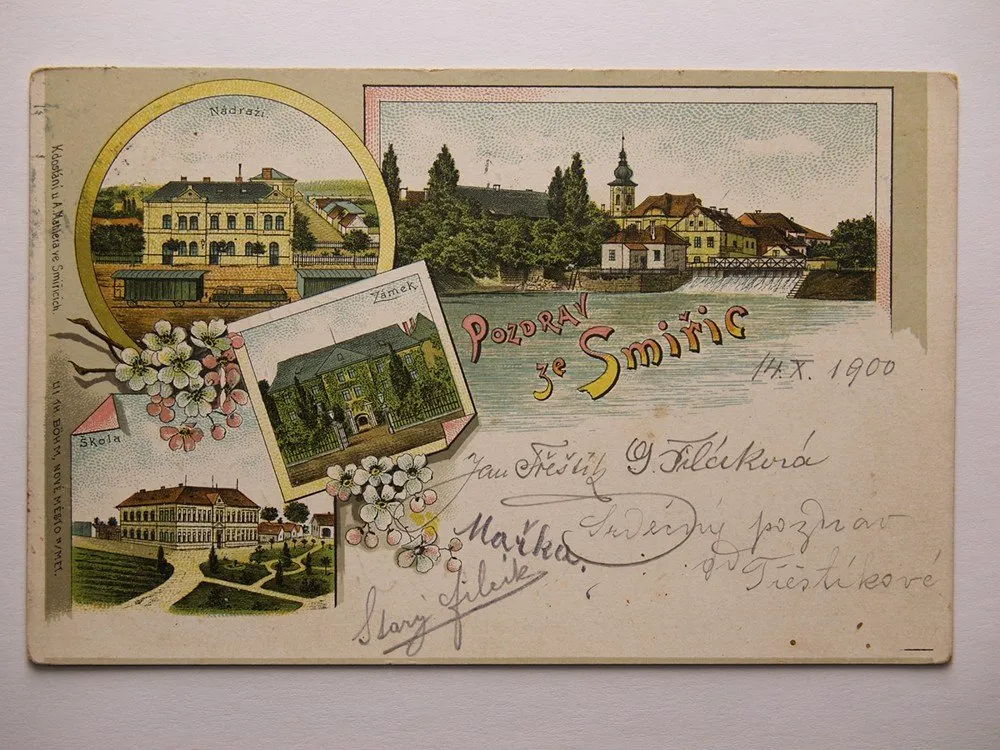 Nádraží
Zámek
Škola
POZDRAV
ze Smiřic
14.X. 1900
Jan Třeštík G. Filčíková
Srdečný pozdrav
od Třeštíkové
Mařka.
Starý Filčík
K dostání u A. ve Smiřicích.
LITH. BÖHM, NOVÉ MĚSTO n/MET.